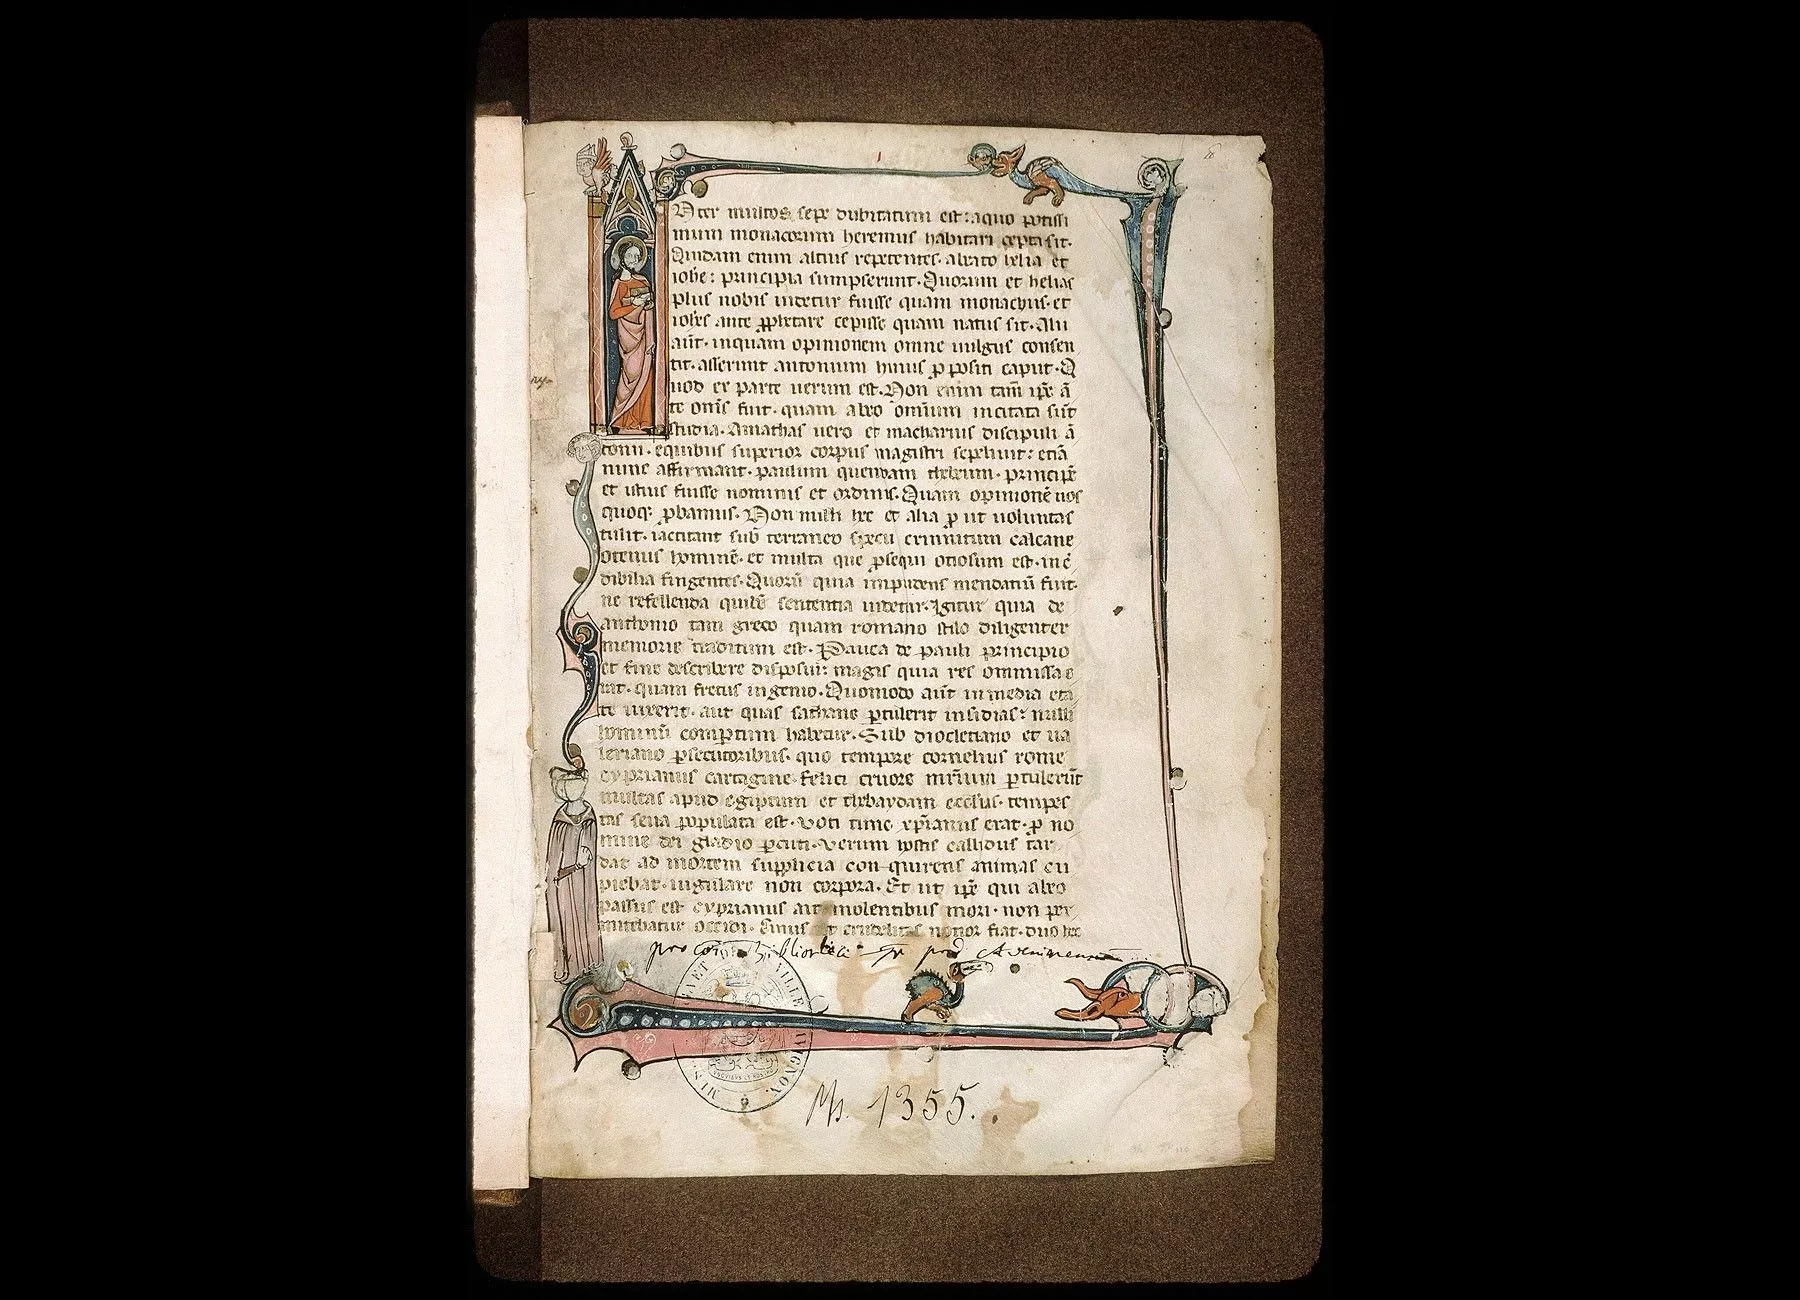 Nter multos sepe dubitatum est: aquo potissi
mum monacorum heremus habitari cepta sit.
Quidam enim altius repetentes. abeato helia et
iohe: principia sumpserunt. Quorum et helias
plus nobis uidetur fuisse quam monachus. et
iohes ante ꝓphetare cepisse quam natus sit. Alii
aūt. inquam opinionem omne uulgus consen
tit. asserunt antonium huius ꝓ positi caput. Q
uod ex parte uerum est. Non enim tam̄ ip̄e ā
te om̄s fuit. quam abeo omnium incitata sūt
studia. Amathas uero et macharius discipuli ā
tonii. equibus superior corpus magistri sepeliuit: etiā
nunc affirmant. paulum quendam thebeum. principē
et istius fuisse nominis et ordinis. Quam opinionē nos
quoqꝫ ꝓbamus. Non nulli hec et alia ꝓ ut uoluntas
tulit. iactitant sub terraneo specu crinnitum calcane
otenus hominē. et multa que ꝓsequi otiosum est. incͤ
dibilia fingentes. Quorū quia impudens mendatiū fuit.
ne refellenda quidē sententia uidetur. Igitur quia de
anthonio tam greco quam romano stilo diligenter
memorie traditum est. Pauca de pauli principio
et fine describere disposui: magis quia res ommissa e
rat. quam fretus ingenio. Quomodo aūt inmedia eta
te uixerit. aut quas sathane ꝑtulerit insidias: nulli
hominū compertum habetur. Sub diocletiano et ua
leriano ꝑsecutoribus. quo tempore cornelius rome
cyprianus cartagine. felici cruore mr̄ium ꝑtulerūt
multas apud egiptum et thebaydam ecclias. tempes
tas seua populata est. Voti tunc xp̄ianus erat. ꝓ no
mine dei gladio ꝑcuti. Verum hostis callidus tar
da ad mortem supplicia con quirens animas cu
piebat. iugulare non corpora. Et ut ip̄e qui abeo
passus est cyprianus ait. uolentibus mori. non per
mittebatur occidi. Cuius ut crudelitas notior fiat. duo hec
pro Bibliotheca
Ms. 1355.